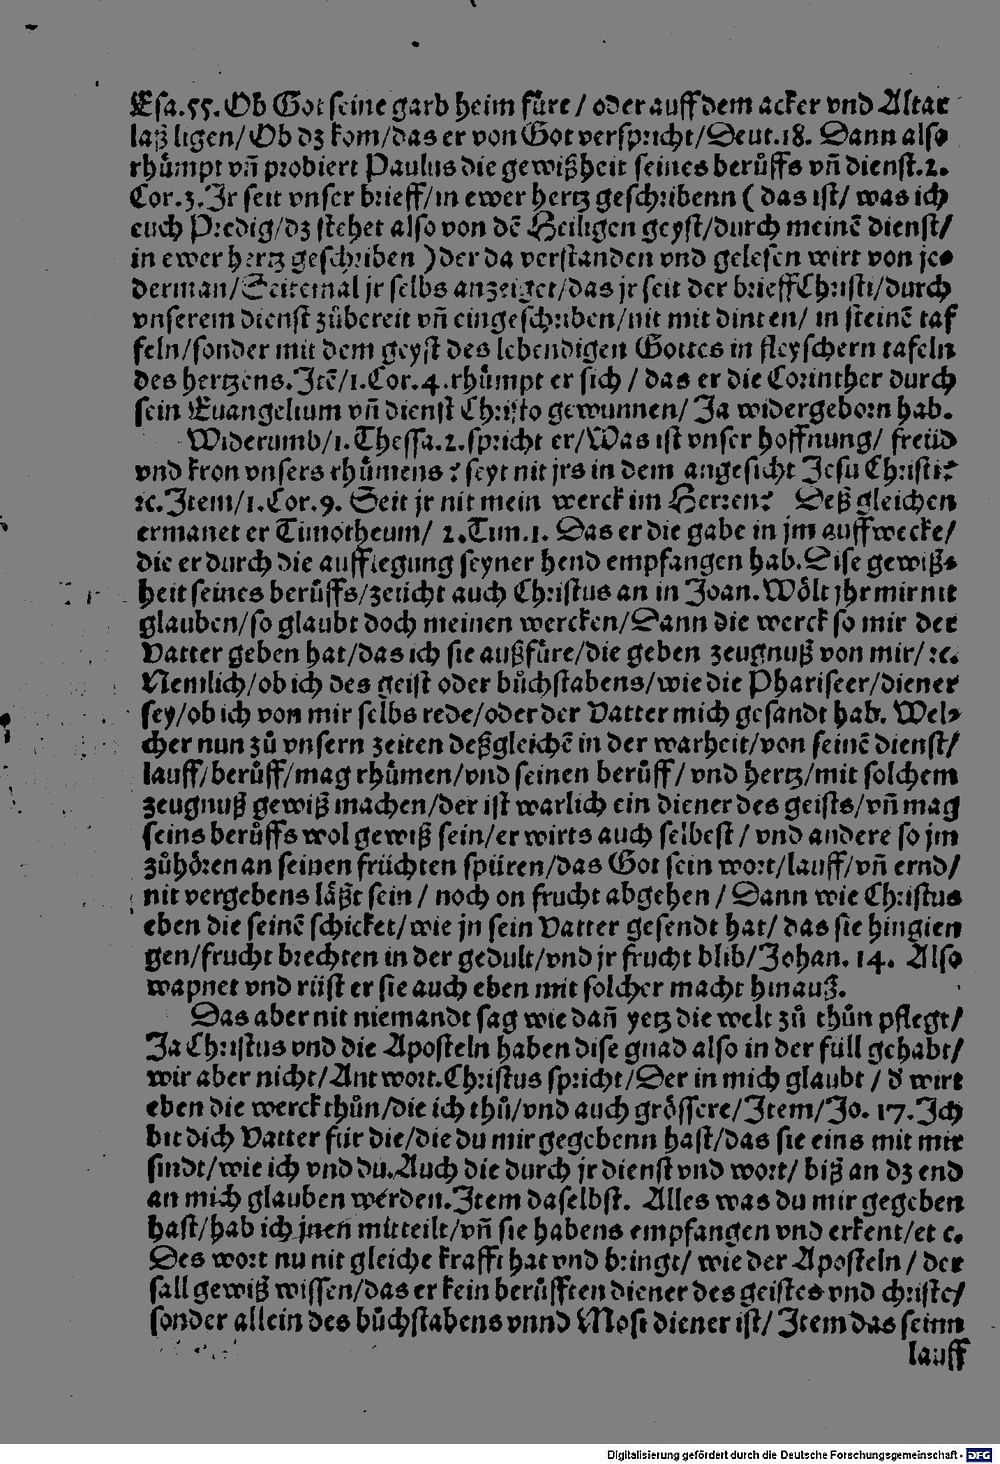 Esa.55. Ob Got seine garb heim fůre / oder auff dem acker vnd Altar
laß ligen/ Ob dz kom/das er von Got verspricht/Deut.18. Dann also
rhůmpt vñ probiert Paulus die gewißheit seines berůffs vñ dienst.2.
Cor.3. Ir seit vnser brieff/in ewer hertz geschribenn ( das ist/ was ich
euch Predig/dz stehet also von dē Heiligen geyst/durch meinē dienst/
in ewer hertz geschriben ) der da verstanden vnd gelesen wirt von je⸗
derman/Seitemal jr selbs anzeiget/das jr seit der brieff Christi/durch
vnserem dienst zůbereit vñ eingeschriben/nit mit dinten/ in steinē taf
feln/sonder mit dem geyst des lebendigen Gottes in fleyschern tafeln
des hertzens. Itē/1.Cor.4.rhůmpt er sich / das er die Corinther durch
sein Euangelium vñ dienst Christo gewunnen/ Ja widergeborn hab.
Widerumb/1.Thessa.2.spricht er/Was ist vnser hoffnung/ freüd
vnd kron vnsers rhůmens? seyt nit jrs in dem angesicht Jesu Christi?
ꝛc. Item/1.Cor.9. Seit jr nit mein werck im Herren? Deßgleichen
ermanet er Timotheum/ 2.Tim.1. Das er die gabe in jm auffwecke/
die er durch die aufflegung seyner hend empfangen hab. Dise gewiß⸗
heit seines berůffs/zeücht auch Christus an in Joan. Wölt jhr mir nit
glauben/so glaubt doch meinen wercken/Dann die werck so mir der
Vatter geben hat/das ich sie außfůre/die geben zeugnuß von mir/ꝛc.
Nemlich/ob ich des geist oder bůchstabens/wie die Phariseer/diener
sey/ob ich von mir selbs rede/oder der Vatter mich gesandt hab. Wel⸗
cher nun zů vnsern zeiten deßgleichē in der warheit/von seinē dienst/
lauff/berůff/mag rhůmen/vnd seinen berůff/ vnd hertz/mit solchem
zeugnuß gewiß machen/der ist warlich ein diener des geists/vñ mag
seins berůffs wol gewiß sein/er wirts auch selbest / vnd andere so jm
zůhören an seinen früchten spüren/das Got sein wort/lauff/vñ ernd/
nit vergebens läßt sein / noch on frucht abgehen / Dann wie Christus
eben die seinē schicket/wie jn sein Vatter gesendt hat/ das sie hingien
gen/frucht brechten in der gedult/vnd jr frucht blib/Johan. 14. Also
wapnet vnd rüst er sie auch eben mit solcher macht hinauß.
Das aber nit niemandt sag wie dañ yetz die welt zů thůn pflegt/
Ja Christus vnd die Aposteln haben dise gnad also in der füll gehabt/
wir aber nicht/Antwort. Christus spricht/Der in mich glaubt / d' wirt
eben die werck thůn/die ich thů/vnd auch grössere/Item/Jo. 17. Ich
bit dich Vatter für die/die du mir gegebenn hast/das sie eins mit mir
sindt/wie ich vnd du. Auch die durch jr dienst vnd wort/ biß an dz end
an mich glauben werden. Item daselbst. Alles was du mir gegeben
hast/hab ich jnen mitteilt/vñ sie habens empfangen vnd erkent/et c.
Des wort nu nit gleiche krafft hat vnd bringt/ wie der Aposteln / der
sall gewiß wissen/das er kein berůfften diener des geistes vnd christe/
sonder allein des bůchstabens vnnd Mosi diener ist/ Item das seinn
lauff
Digitalisierung gefördert durch die Deutsche Forschungsgemeinschaft - DFG